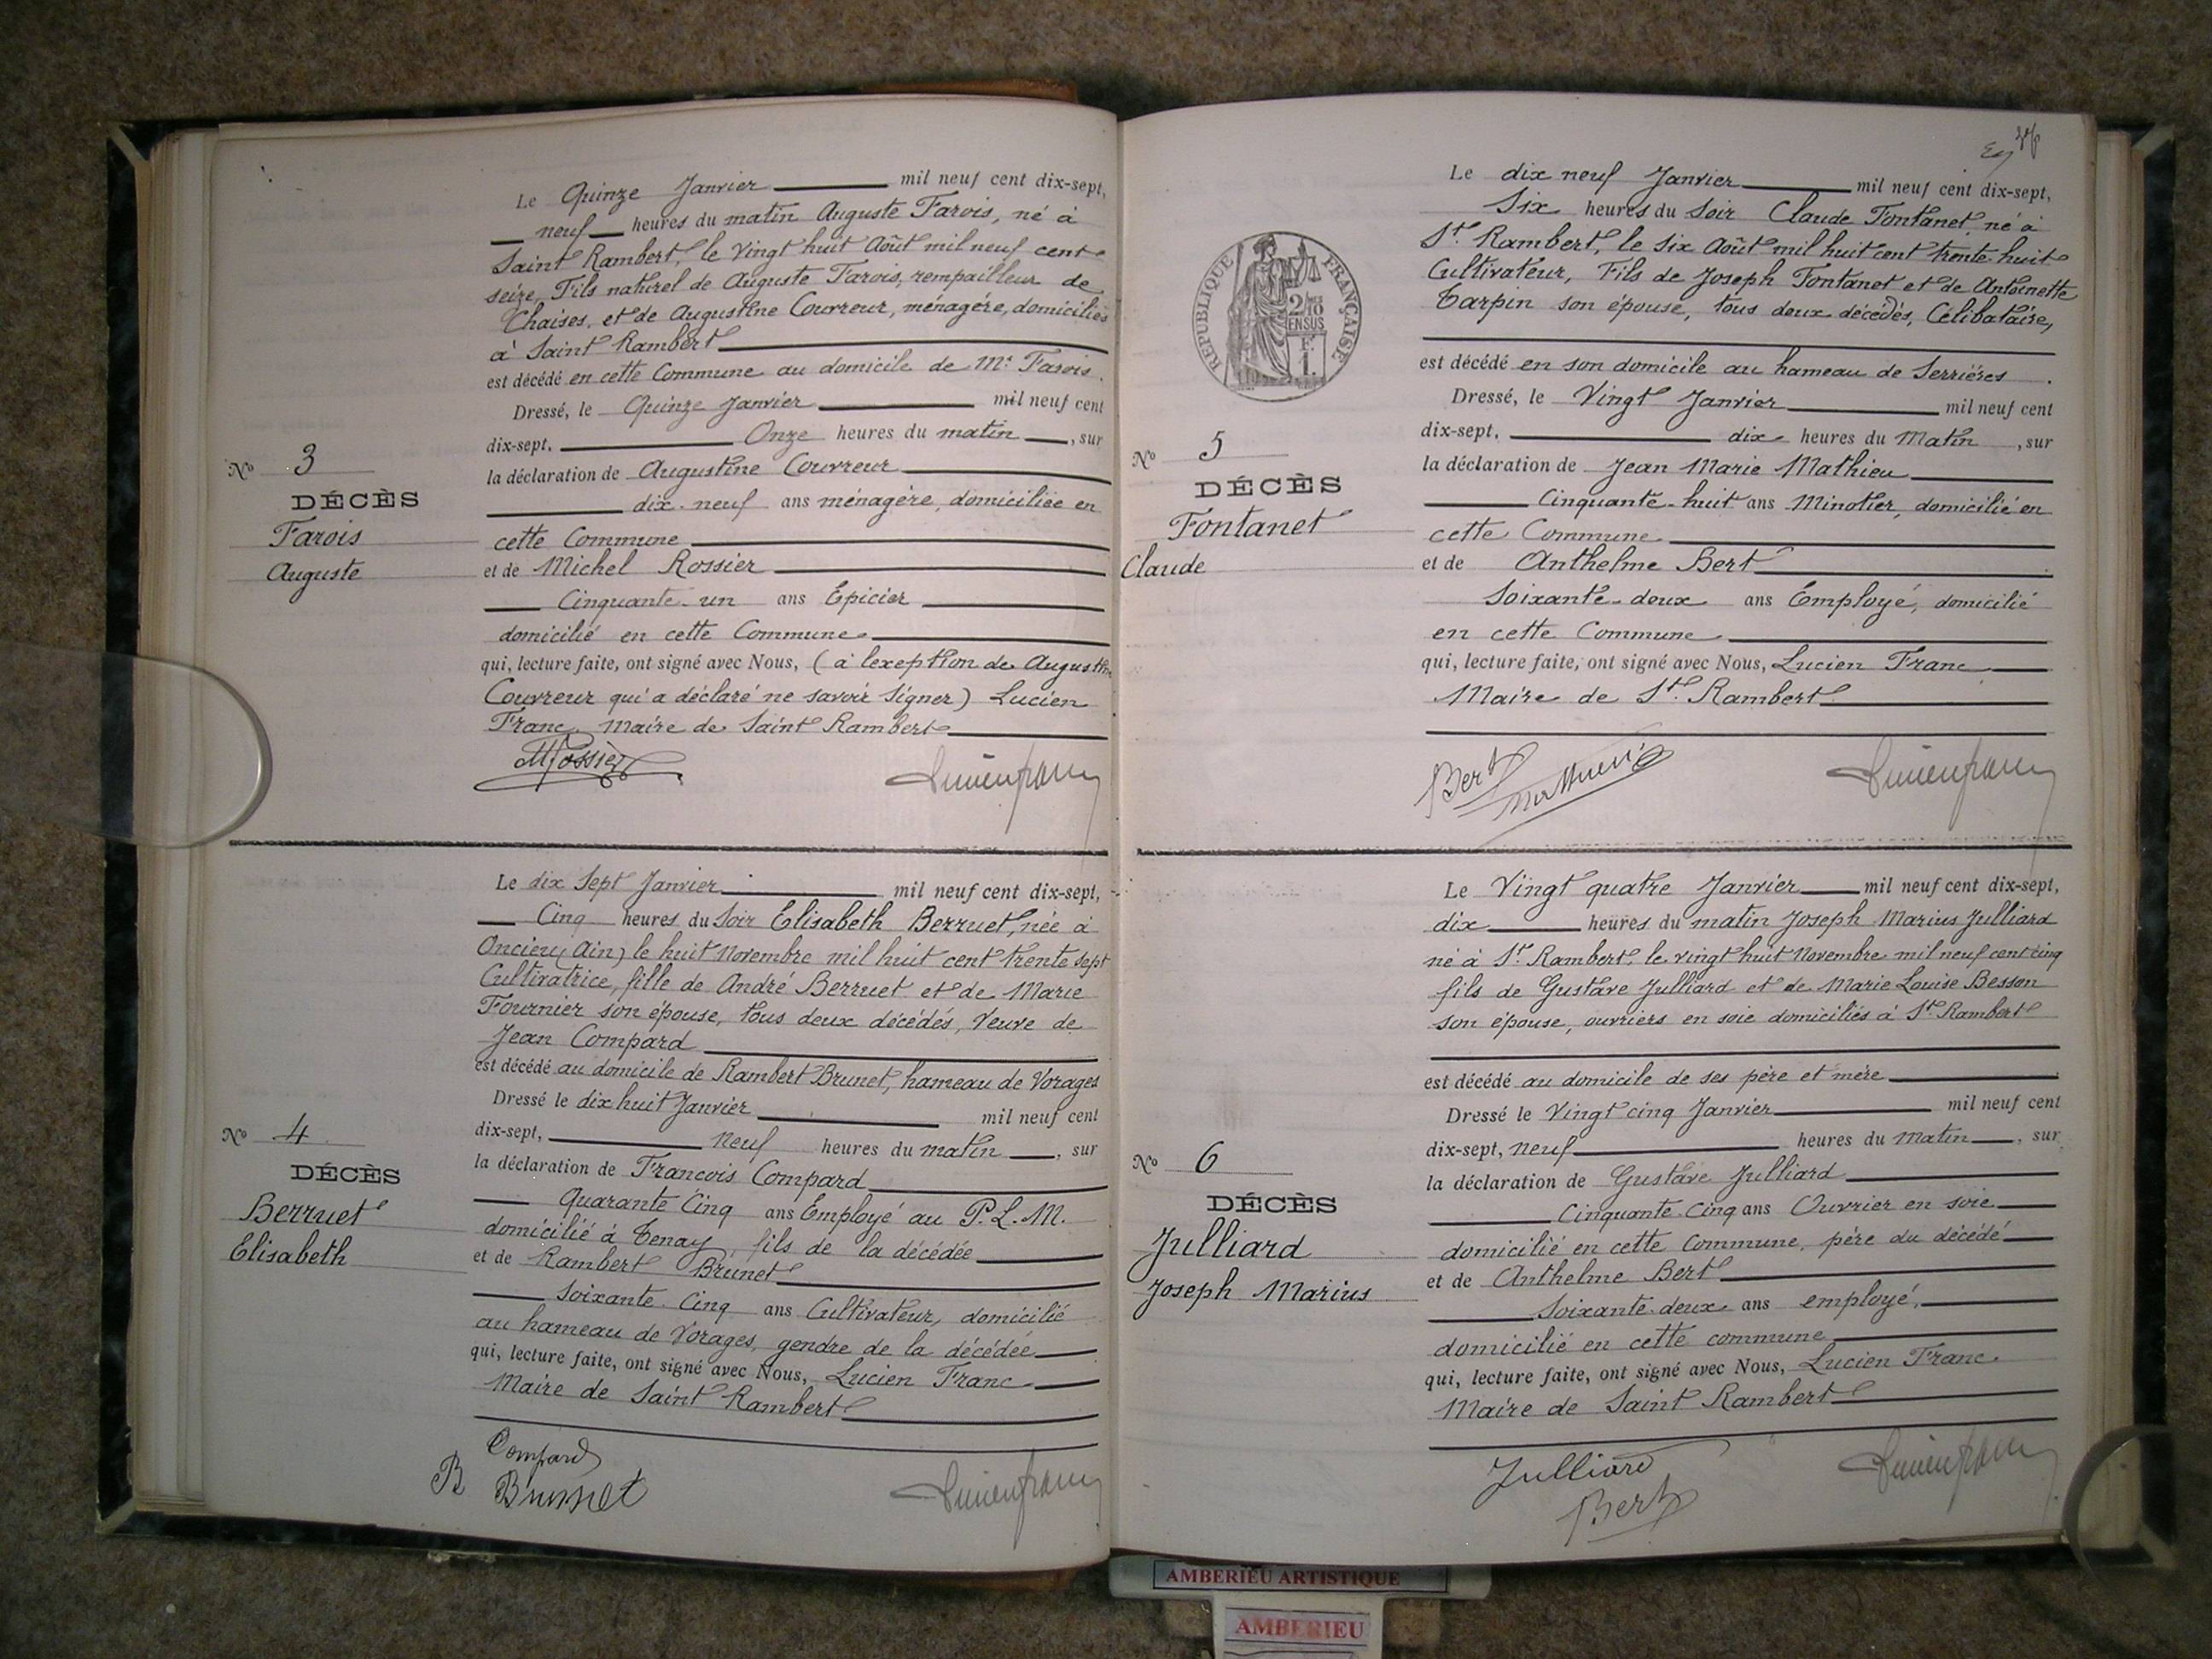 Le Quinze Janvier mil neuf cent dix-sept,
neuf heures du matin Auguste Farois, né à
Saint Rambert, le Vingt huit Août mil neuf cent
seize, Fils naturel de Auguste Farois, rempailleur de
Chaises, et de Augustine Couvreur, ménagére, domiciliés
à Saint Rambert
est décédé en cette Commune au domicile de Mr Farois.
Dressé, le Quinze Janvier mil neuf cent
dix-sept. Onze heures du matin, sur
No 3
la déclaration de Augustine Couvreur
DÉCÈS
dix-neuf ans ménagère, domiciliée en
Farois
cette Commune
Auguste
et de Michel Rossier
Cinquante-un ans Epicier
domicilié en cette Commune
qui, lecture faite, ont signé avec Nous, (à lexeption de Augustine
Couvreur qui a déclaré ne savoir Signer) Lucien
Franc, Maire de Saint Rambert
MRossier
Lucien franc
Le dix Sept Janvier mil neuf cent dix-sept,
Cinq heures du Soir Elisabeth Berruet, née à
Oncieu (Ain) le huit Novembre mil huit cent trente sept
Cultivatrice, fille de André Berruet et de Marie
Fournier son épouse, tous deux décédés, Veuve de
Jean Compard
est décédé au domicile de Rambert Brunet, hameau de Vorages
Dressé le dix huit Janvier mil neuf cent
No 4
dix-sept, Neuf heures du matin, sur
DÉCÈS
la déclaration de Francois Compard
Berruet
Quarante Cinq ans Employé au P.L.M.
Elisabeth
domicilié à Tenay, fils de la décédée
et de Rambert Brunet
Soixante Cinq ans Cultivateur, domicilié
au hameau de Vorages, gendre de la décédée
qui, lecture faite, ont signé avec Nous, Lucien Franc
Maire de Saint Rambert
Compard
B Brunet
Lucien franc
Le dix neuf Janvier mil neuf cent dix-sept,
Six heures du Soir Claude Fontanet, né à
St. Rambert, le Six Août mil huit cent trente huit
Cultivateur, Fils de Joseph Fontanet et de Antoinette
Tarpin son épouse, tous deux décédés, Célibataire,
REPUBLIQUE FRANÇAISE
2/10
EN SUS
F.
1.
est décédé en son domicile au hameau de Serriéres.
Dressé, le Vingt Janvier mil neuf cent
dix-sept, dix heures du Matin, sur
No 5
la déclaration de Jean Marie Mathieu
DÉCÈS
Cinquante-huit ans Minotier, domicilié en
Fontanet
cette Commune
Claude
et de Anthelme Bert
Soixante-deux ans Employé, domicilié
en cette Commune
qui, lecture faite, ont signé avec Nous, Lucien Franc
Maire de St. Rambert
Bert
Mathieu
Lucien franc
Le Vingt quatre Janvier mil neuf cent dix-sept,
dix heures du matin Joseph Marius Julliard
né à St. Rambert, le vingt huit Novembre mil neuf cent cinq
fils de Gustave Julliard et de Marie Louise Besson
son épouse, ouvriers en soie domiciliés à St. Rambert
est décédé au domicile de ses père et mère
Dressé le Vingt cinq Janvier mil neuf cent
dix-sept, neuf heures du Matin, sur
No 6
la déclaration de Gustave Julliard
DÉCÈS
Cinquante-Cinq ans Ouvrier en soie
Julliard
domicilié en cette Commune, père du décédé
Joseph Marius
et de Anthelme Bert
Soixante-deux ans employé,
domicilié en cette commune
qui, lecture faite, ont signé avec Nous, Lucien Franc
Maire de Saint Rambert
Julliard
Bert
Lucien franc
AMBERIEU ARTISTIQUE
AMBERIEU